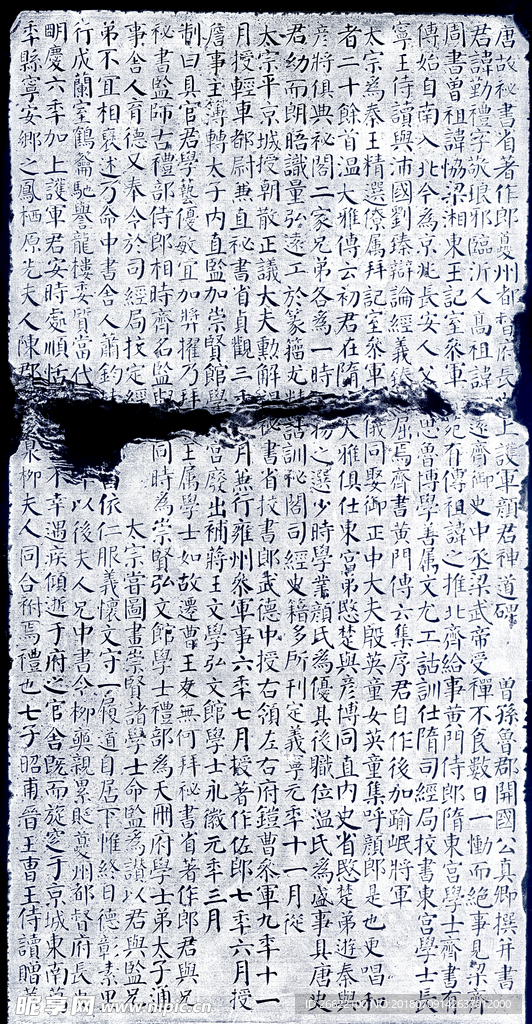 唐故秘書省著作郎夔州都督府長上護軍顏君神道碑 曾孫魯郡開國公真卿撰并書
君諱勤禮字敬琅邪臨沂人高祖諱遠齊御史中丞梁武帝受禪不食數日一慟而絕事見梁齊
周書曾祖諱協梁湘東王記室參軍苑有傳祖諱之推北齊給事黃門侍郎隋東宮學士齊書有
傳始自南入北今為京兆長安人父思魯博學善屬文尤工詁訓仕隋司經局校書東宮學士長
寧王侍讀與沛國劉臻辯論經義臻屈焉齊書黃門傳云集序君自作後加踰岷將軍
太宗為秦王精選僚属拜記室參軍儀同娶御正中大夫殷英童女英童集呼顏郎是也更唱和
者二十餘首溫大雅傳云初君在隋大雅俱仕東宮弟愍楚與彥博同直內史省愍楚弟遊秦與
彥將俱典秘閣二家兄弟各為一時物之選少時學業顏氏為優其後職位溫氏為盛事具唐史
君幼而朗晤識量弘遠工於篆籀尤精詁訓秘閣司經史籍多所刊定義寧元年十一月從
太宗平京城授朝散正議大夫勳解秘書省校書郎武德中授右領左右府鎧曹參軍九年十一
月授輕車都尉兼直秘書省貞觀三年月兼行雍州參軍事六年七月授著作佐郎七年六月授
詹事主簿轉太子內直監加崇賢館學宮廢出補蔣王文學弘文館學士永徽元年三月
制曰具官君學藝優敏宜加獎擢乃拜王属學士如故遷曹王友無何拜秘書省著作郎君與兄
秘書監師古禮部侍郎相時齊名監與同時為崇賢弘文館學士禮部為天冊府學士弟太子通
事舍人育德又奉令於司經局校定經 太宗嘗圖畫崇賢諸學士命監為讚以君與監兄
弟不宜相褒述乃命中書舍人蕭鈞特曰依仁服義懷文守一履道自居下帷終日德彰素里
行成蘭室鶴籥馳譽龍樓委質當代年以後夫人兄中書令柳奭親累貶夔州都督府長史
明慶六年加上護軍君安時處順恬不幸遇疾傾逝于府之官舍既而旋窆于京城東南萬
年縣寧安鄉之鳳栖原先夫人陳郡泉柳夫人同合祔焉禮也七子昭甫晉王曹王侍讀贈華
昵享网